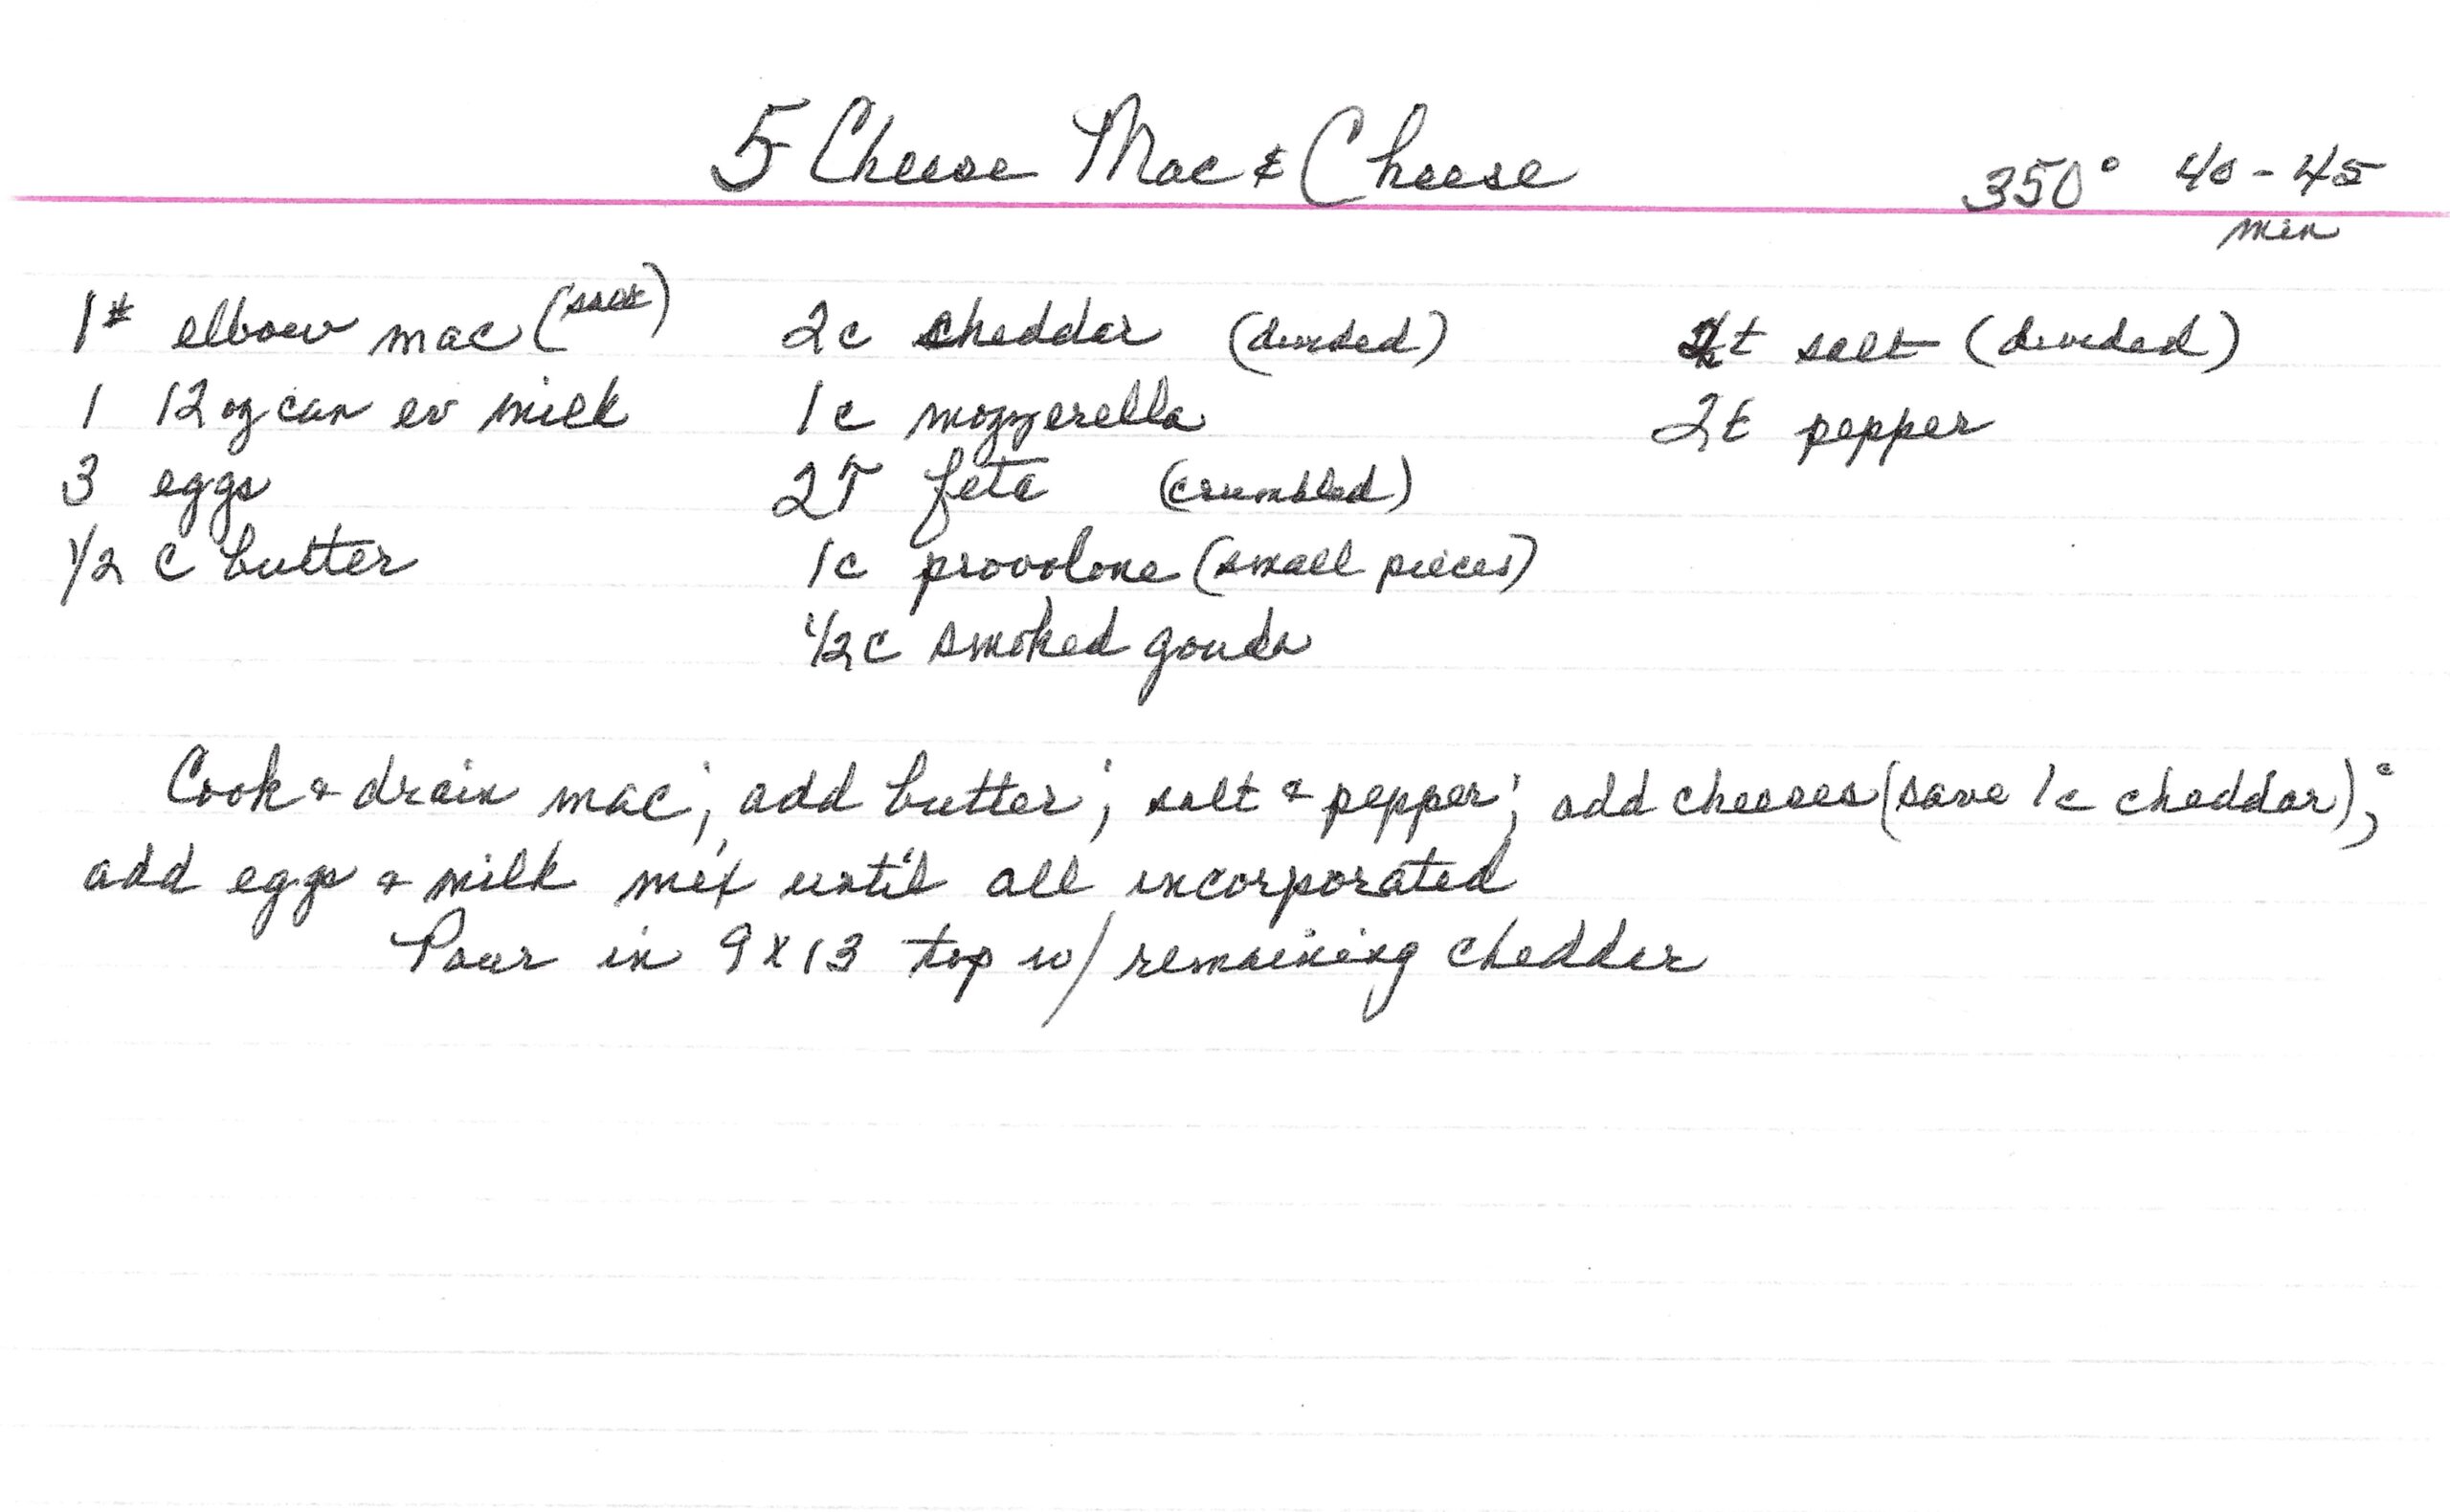 5 Cheese Mac & Cheese
350° 40-45
min
1# elbow mac (salt)
1 12 oz can ev milk
3 eggs
1/2 c butter
2c cheddar (divided)
1c mozzerella
2T feta (crumbled)
1c provolone (small pieces)
1/2c smoked gouda
t salt (divided)
2t pepper
Cook & drain mac; add butter; salt & pepper; add cheeses (save 1c cheddar);
add eggs & milk mix until all incorporated
Pour in 9x13 top w/ remaining cheddar